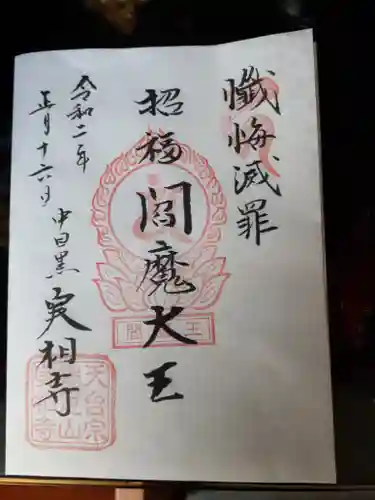 懺悔滅罪
招福
閻魔大王
令和二年
正月十六日
中目黒
実相寺
閻
王
天台宗